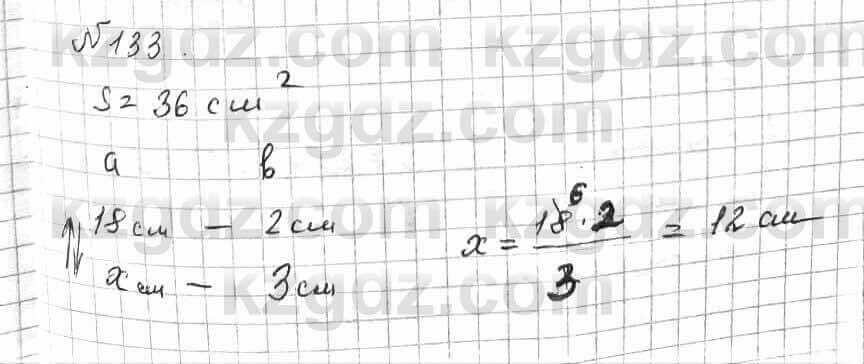 №133.
S = 36 см²
a b
18 см — 2 см
x см — 3 см
x = 18⁶ · 2 / 3 = 12 см
kzgdz.com kzgdz.com
kzgdz.com kzgdz.com
kzgdz.com kzgdz.com
kzgdz.com kzgdz.com